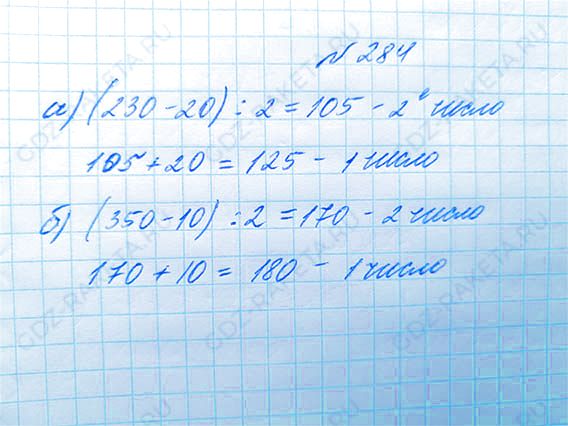 № 284
а) (230 - 20) : 2 = 105 - 2 число
105 + 20 = 125 - 1 число
б) (350 - 10) : 2 = 170 - 2 число
170 + 10 = 180 - 1 число
GDZ-RAKETA.RU